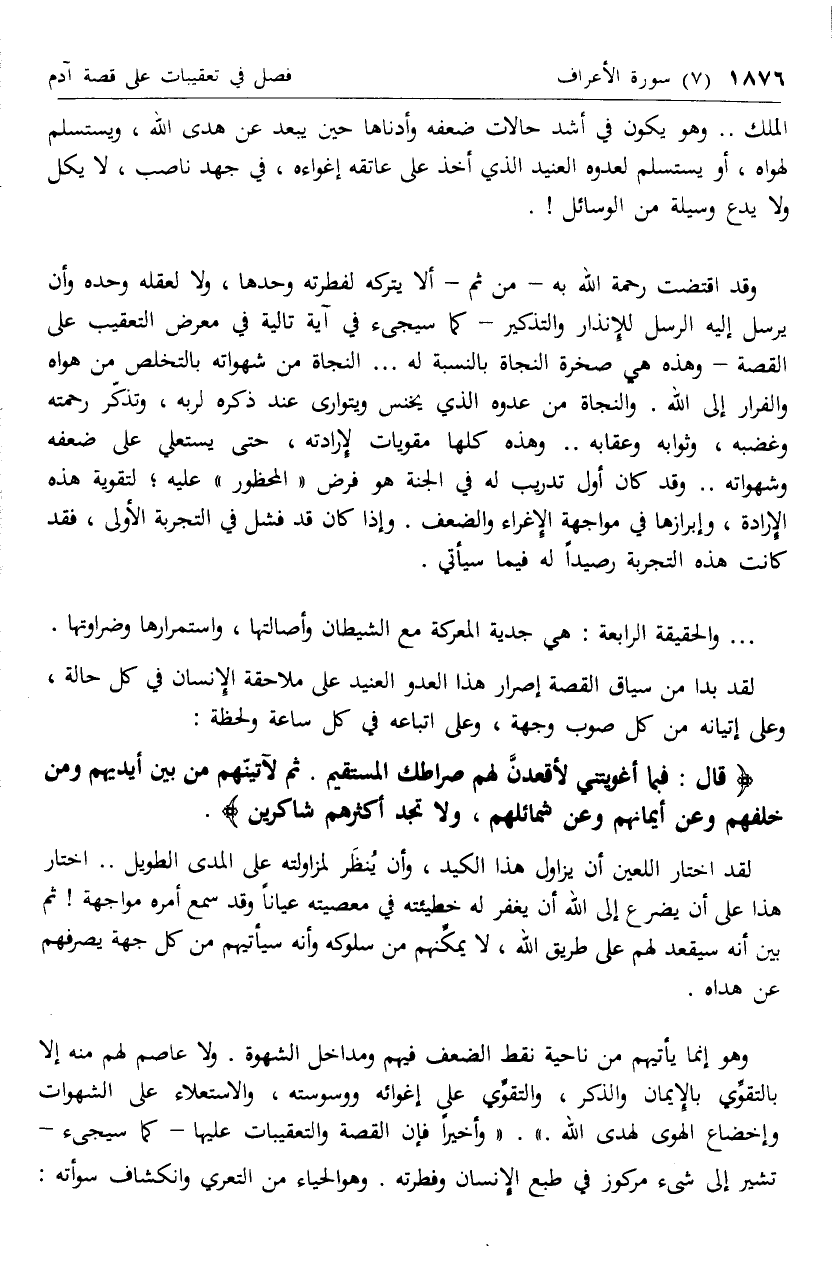 ١٨٧٦ (٧) سورة الأعراف فصل في تعقيبات على قصة آدم
الملك .. وهو يكون في أشد حالات ضعفه وأدناها حين يبعد عن هدى الله ، ويستسلم
لهواه ، أو يستسلم لعدوه العنيد الذي أخذ على عاتقه إغواءه ، في جهد ناصب ، لا يكل
ولا يدع وسيلة من الوسائل ! .
وقد اقتضت رحمة الله به – من ثم – ألا يتركه لفطرته وحدها ، ولا لعقله وحده وأن
يرسل إليه الرسل للإنذار والتذكير – كما سيجىء في آية تالية في معرض التعقيب على
القصة – وهذه هي صخرة النجاة بالنسبة له ... النجاة من شهواته بالتخلص من هواه
والفرار إلى الله . والنجاة من عدوه الذي يخنس ويتوارى عند ذكره لربه ، وتذكّر رحمته
وغضبه ، وثوابه وعقابه .. وهذه كلها مقويات لإرادته ، حتى يستعلي على ضعفه
وشهواته .. وقد كان أول تدريب له في الجنة هو فرض « المحظور » عليه ؛ لتقوية هذه
الإرادة ، وإبرازها في مواجهة الإغراء والضعف . وإذا كان قد فشل في التجربة الأولى ، فقد
كانت هذه التجربة رصيداً له فيما سيأتي .
... والحقيقة الرابعة : هي جدية المعركة مع الشيطان وأصالتها ، واستمرارها وضراوتها .
لقد بدا من سياق القصة إصرار هذا العدو العنيد على ملاحقة الإنسان في كل حالة ،
وعلى إتيانه من كل صوب وجهة ، وعلى اتباعه في كل ساعة ولحظة :
﴿ قال : فبما أغويتني لأقعدنَّ لهم صراطك المستقيم . ثم لآتينّهم من بين أيديهم ومن
خلفهم وعن أيمانهم وعن شمائلهم ، ولا تجد أكثرهم شاكرين ﴾ .
لقد اختار اللعين أن يزاول هذا الكيد ، وأن يُنظَر لمزاولته على المدى الطويل .. اختار
هذا على أن يضرع إلى الله أن يغفر له خطيئته في معصيته عياناً وقد سمع أمره مواجهة ! ثم
بين أنه سيقعد لهم على طريق الله ، لا يمكّنهم من سلوكه وأنه سيأتيهم من كل جهة يصرفهم
عن هداه .
وهو إنما يأتيهم من ناحية نقط الضعف فيهم ومداخل الشهوة . ولا عاصم لهم منه إلا
بالتقوِّي بالإيمان والذكر ، والتقوِّي على إغوائه ووسوسته ، والاستعلاء على الشهوات
وإخضاع الهوى لهدى الله .» . « وأخيراً فإن القصة والتعقيبات عليها – كما سيجىء –
تشير إلى شىء مركوز في طبع الإنسان وفطرته . وهوالحياء من التعري وانكشاف سوأته :